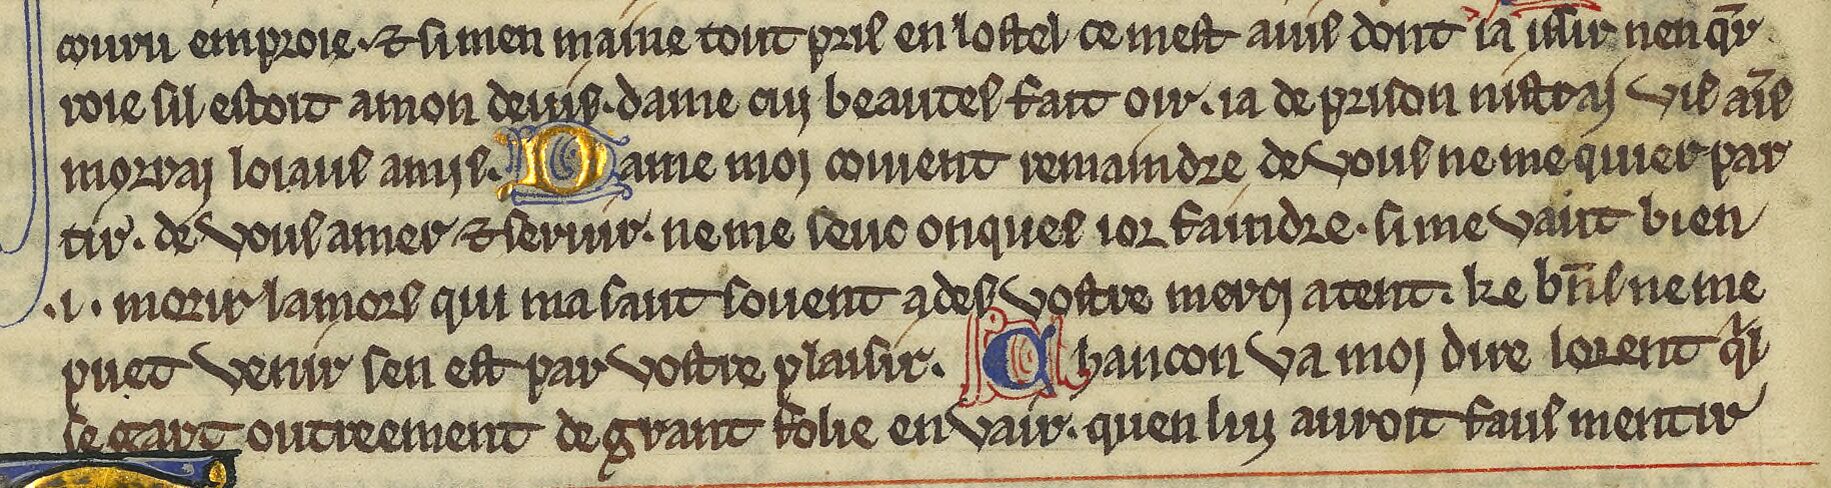 couru enproie · ⁊ si men maine tout pris en lostel ce mest auis dont ia issir nen q̄r
roie sil estoit amon deuis · dame cui beautes fait oir · ia de prison nistrai vis ains
morrai loiaus amis · Dame moi couient remaindre de vous ne me quier par
tir · de vous amer ⁊ seruir · ne me seuc onques ior faindre · si me vaut bien
· i · morir lamors qui masaut souent ades vostre merci atent · ke bn̄s ne me
puet venir sen est par vostre plaisir · Chancon va moi dire lorent q̓l
se gart outreement de grant folie envair · quen lui auroit faus mentir